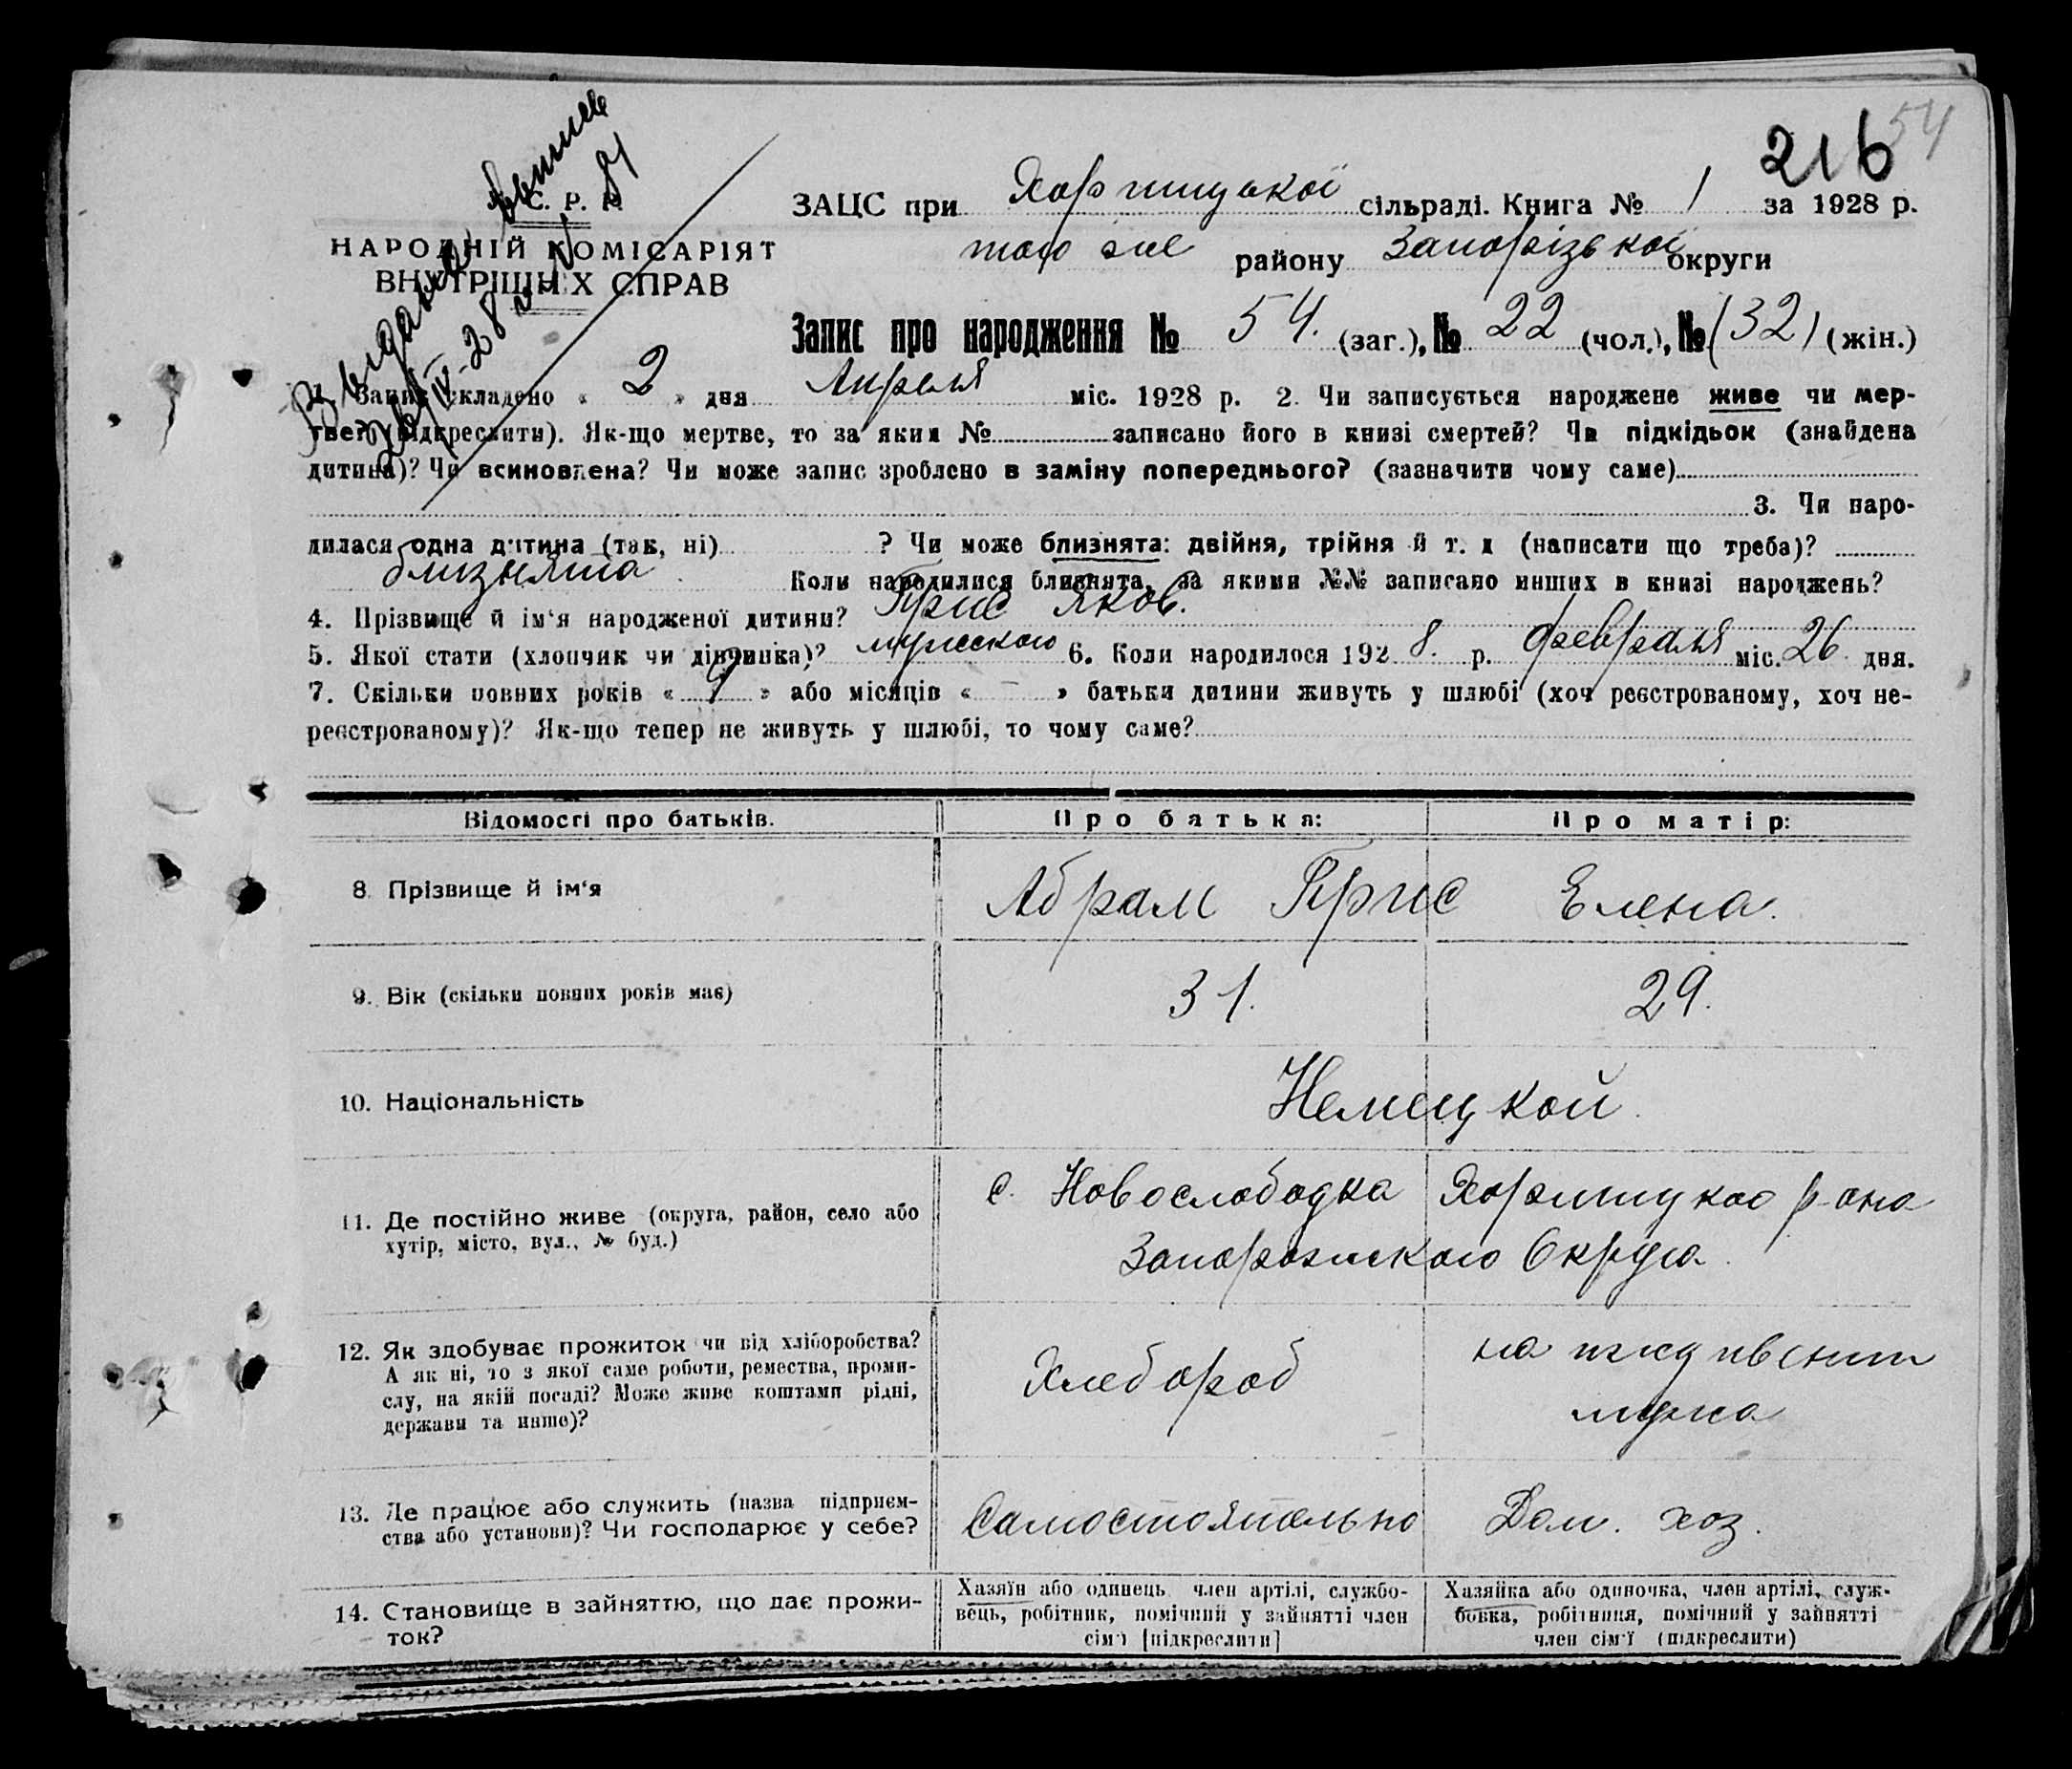 216 54
С. Р. Р.
НАРОДНІЙ КОМІСАРІЯТ
ВНУТРІШНІХ СПРАВ
ЗАЦС при Хортицької сільраді. Книга № 1 за 1928 р.
того же району Запорізької округи
Запис про народження № 54. (заг.), № 22 (чол.), № (32) (жін.)
Запис складено « 2 » дня Апреля міс. 1928 р. 2. Чи записується народжене живе чи мер-
тве? (підкреслити). Як-що мертве, то за яким № записано його в книзі смертей? Чи підкідьок (знайдена
дитина)? Чи всиновлена? Чи може запис зроблено в заміну попереднього? (зазначити чому саме)
3. Чи наро-
дилася одна дитина (так, ні) ? Чи може близнята: двійня, трійня й т. д (написати що треба)?
близнята Коли народилися близнята, за якими №№ записано инших в книзі народжень?
4. Прізвище й ім'я народженої дитини? Прис Яков.
5. Якої стати (хлопчик чи дівчинка)? мужского 6. Коли народилося 1928. р. февраля міс. 26 дня.
7. Скільки повних років « 9 » або місяців « – » батьки дитини живуть у шлюбі (хоч реєстрованому, хоч не-
реєстрованому)? Як-що тепер не живуть у шлюбі, то чому саме?
Відомості про батьків. Про батька: Про матір:
8. Прізвище й ім'я Абрам Прис Елена.
9. Вік (скільки повних років має) 31. 29.
10. Національність Немецкой
11. Де постійно живе (округа, район, село або
хутір, місто, вул., № буд.)
с. Новослободка Хортицкого р-она
Запорожского Округа
12. Як здобуває прожиток чи від хліборобства?
А як ні, то з якої саме роботи, ремества, проми-
слу, на якій посаді? Може живе коштами рідні,
держави та инше)?
Хлебороб
на иждивении
мужа
13. Де працює або служить (назва підприєм-
ства або установи)? Чи господарює у себе?
Самостоятельно Дом. хоз.
14. Становище в зайняттю, що дає прожи-
ток?
Хазяїн або одинець, член артілі, службо-
вець, робітник, помічний у зайнятті член
сім'ї [підкреслити]
Хазяйка або одиночка, член артілі, служ-
бовка, робітниця, помічний у зайнятті
член сім'ї (підкреслити)